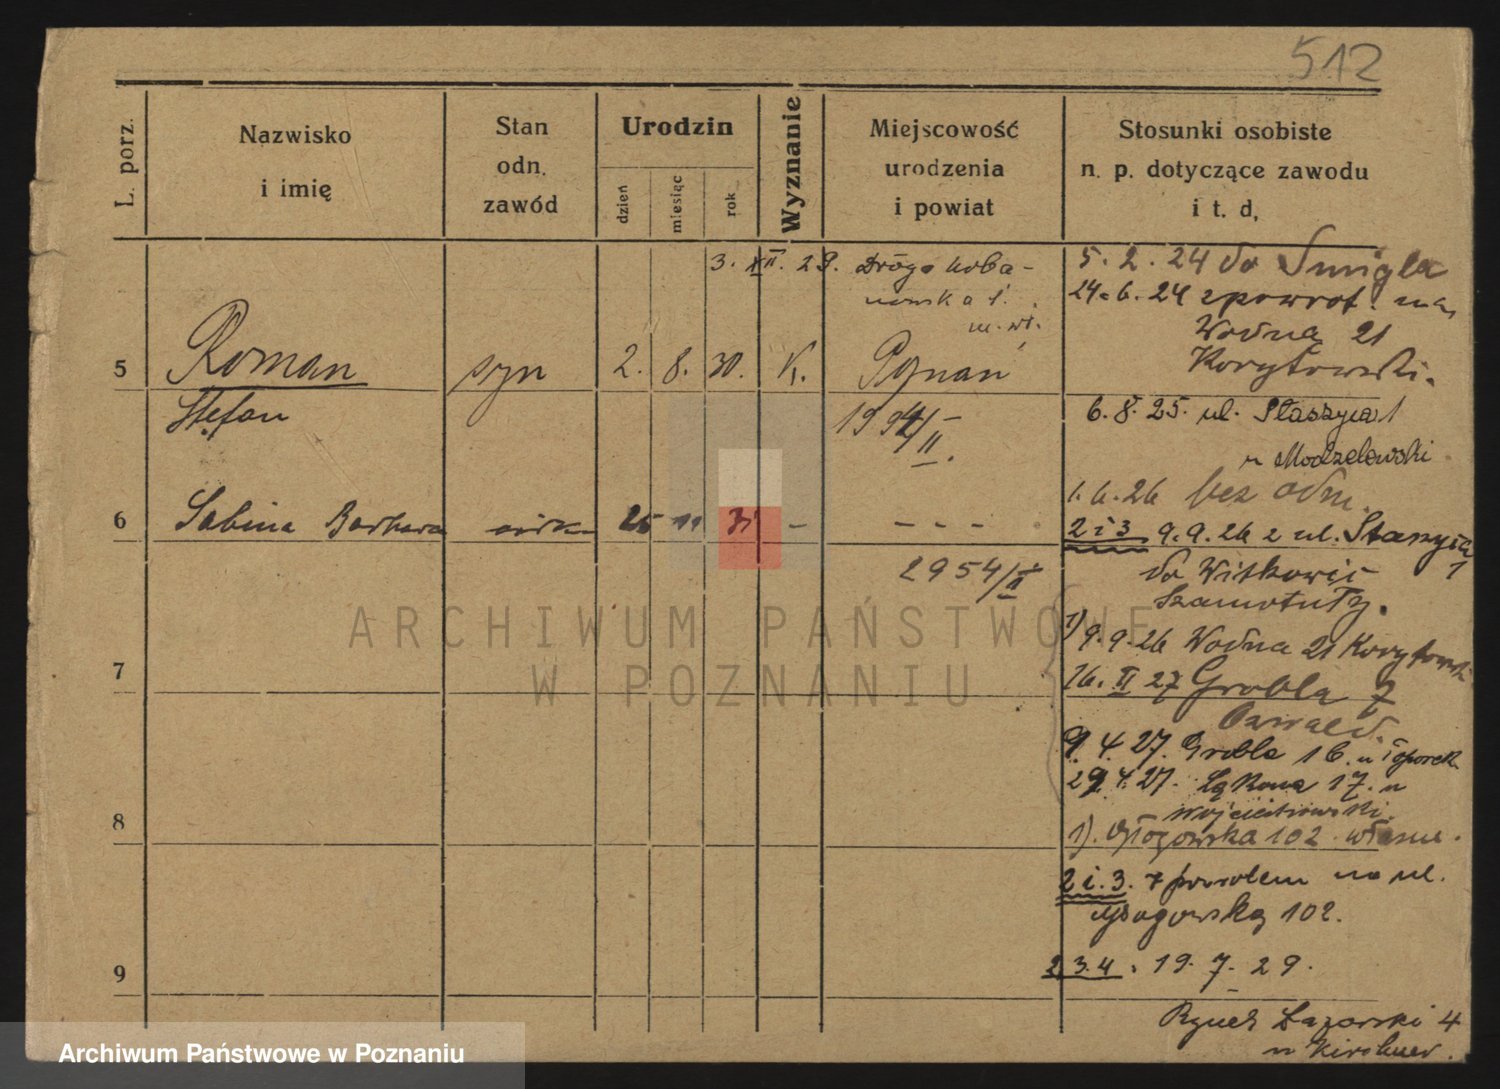 512
L. porz.
Nazwisko
i imię
Stan
odn.
zawód
Urodzin
dzień
miesiąc
rok
Wyznanie
Miejscowość
urodzenia
i powiat
Stosunki osobiste
n. p. dotyczące zawodu
i t. d,
3. XII. 29.
5. 2. 24 do Śmigla
24. 6. 24 zpowrot.
Wodna 21
Korytowski.
5
Roman
syn
2. 8. 30. K.
Poznań
Stefan
6. 8. 25. ul. Staszyca 1
u Modzelewski
1. 6. 26 bez odm.
6
Sabina Barbara
córka
25 11 31 -
- - -
2 i 3 9. 9. 26 z ul. Staszyca 1
2954/II
do Witkowic
Szamotuły.
1) 9. 9. 26 Wodna 21 Korytowski
7
16. II 27 Grobla 7
9. 4. 27. Grobla 16. u
29. 4. 27. Łąkowa 17. u
Wojciechowski.
8
1). Głogowska 102. własne.
2 i. 3. z powrotem na ul.
Głogowską 102.
9
2 3. 4. 19. 7. 29.
Rynek Łazarski 4
ARCHIWUM PAŃSTWOWE
W POZNANIU
Archiwum Państwowe w Poznaniu